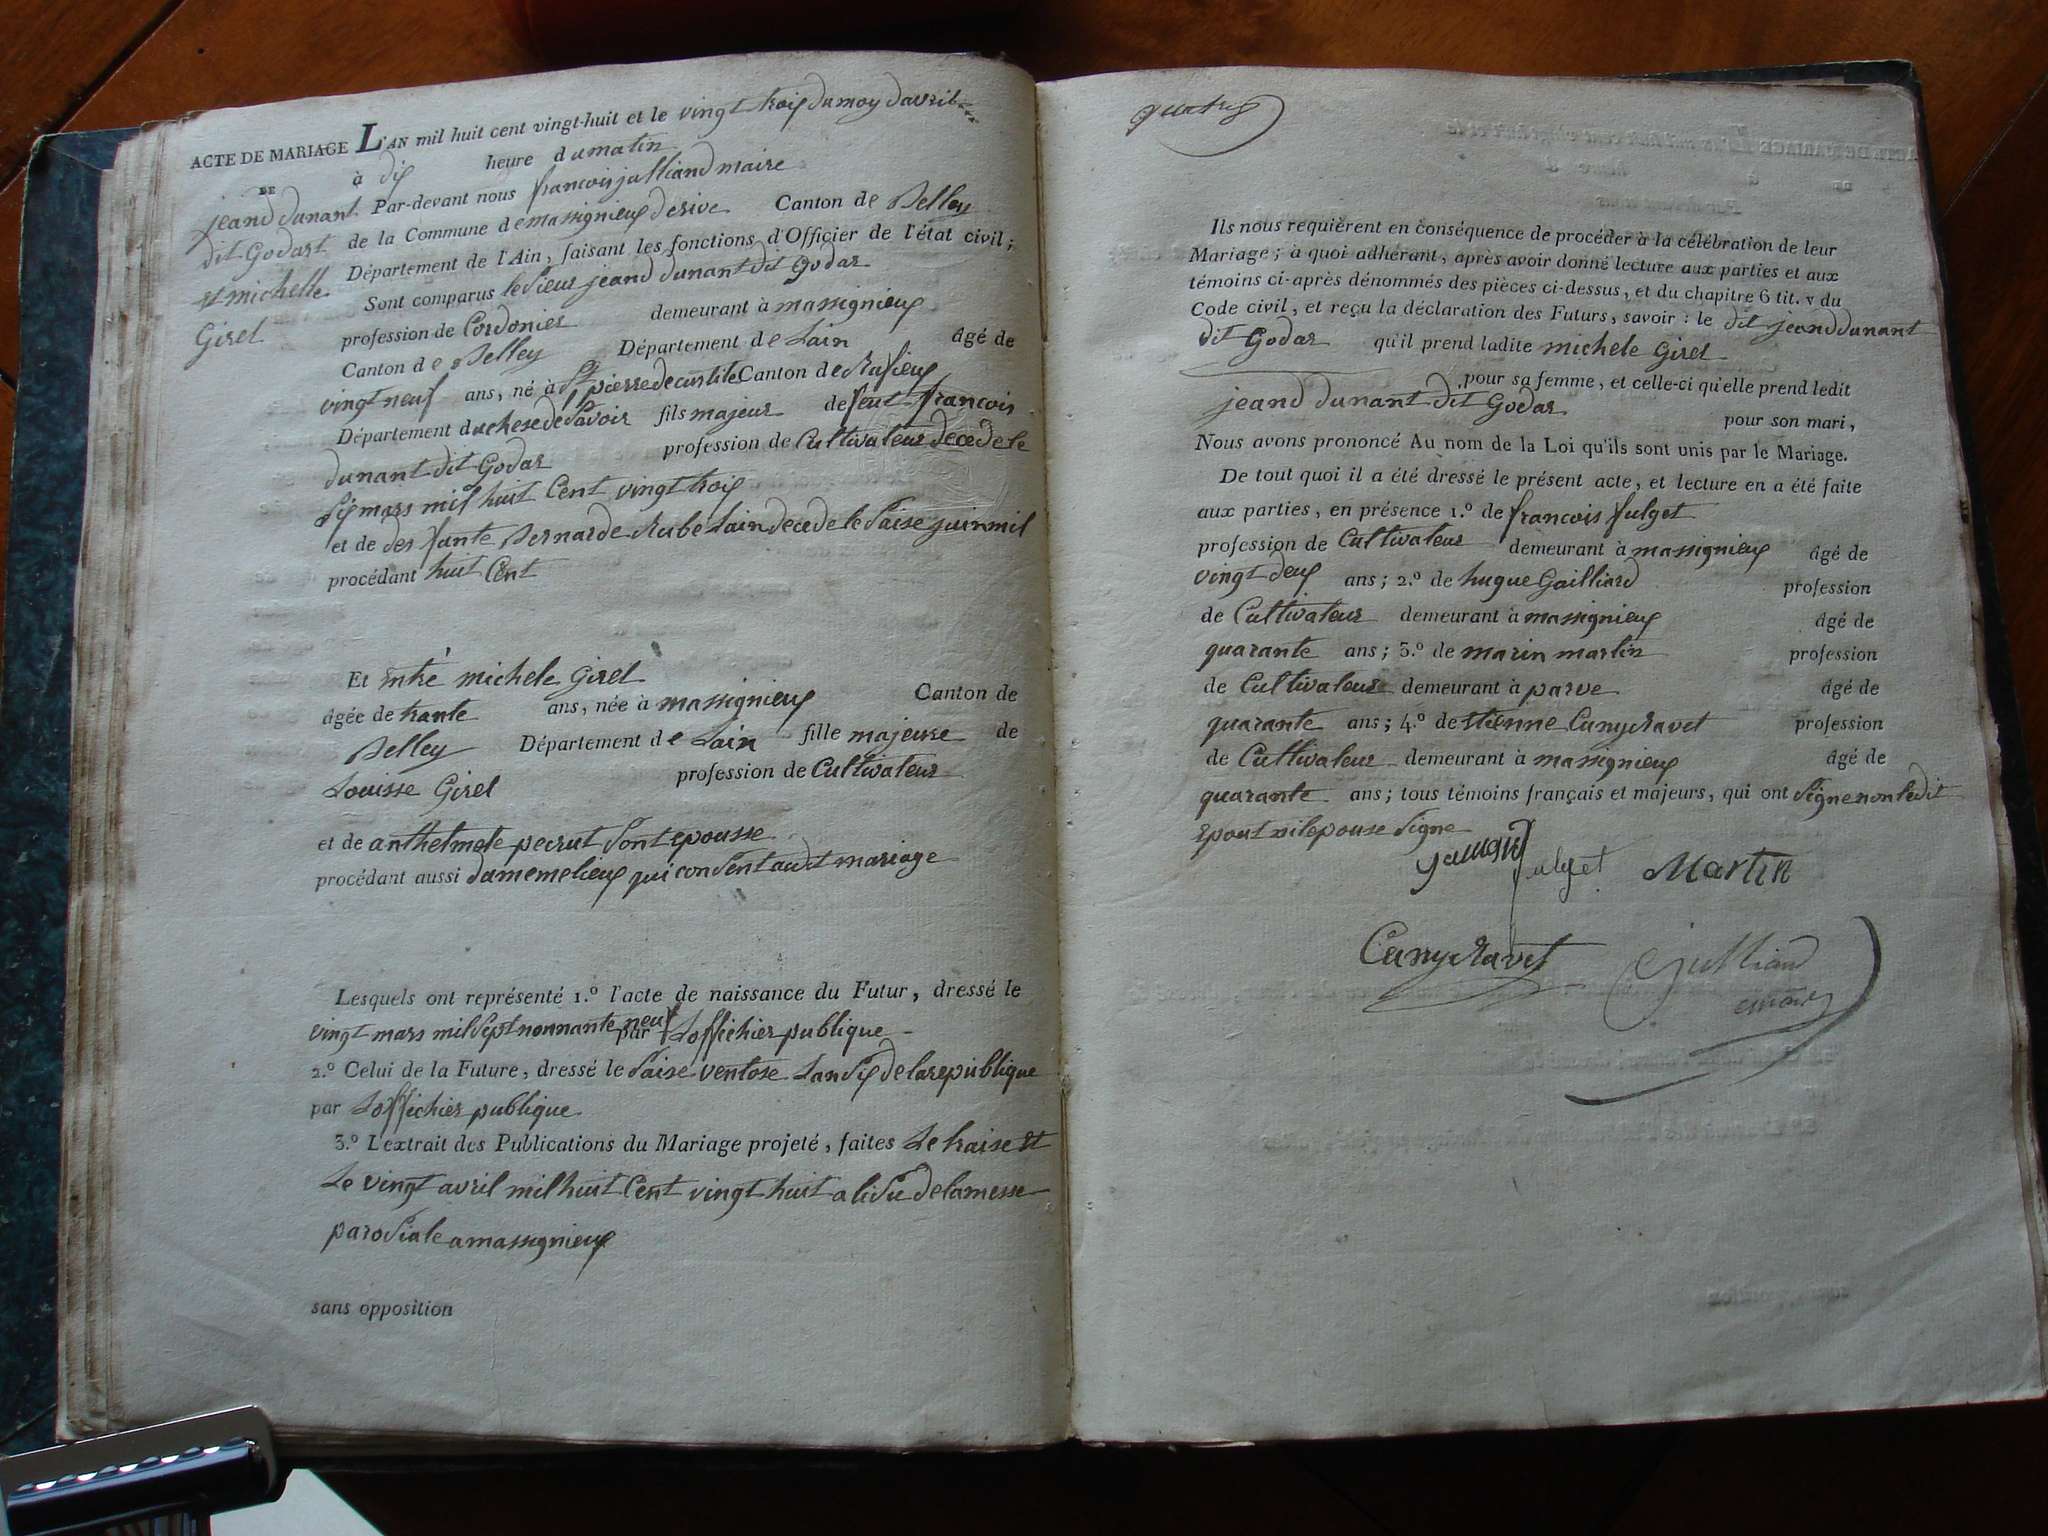 ACTE DE MARIAGE L'AN mil huit cent vingt-huit et le vingt trois du moy davril
DE à dix heure du matin
jeand dunant Par-devant nous francois julliand maire
dit Godart de la Commune de massignieux de rive Canton de Belley
et michelle Département de l'Ain, faisant les fonctions d'Officier de l'état civil;
Girel Sont comparus le Sieur jeand dunant dit Godar
profession de Cordonier demeurant à massignieux
Canton de Belley Département de Lain âgé de
vingt neuf ans, né à St pierre de curtille Canton de Rufieux
Département duchese de Savoir fils majeur de feut francois
dunant dit Godar profession de Cultivateur decede le
Six mars mil huit Cent vingt trois
et de def funte Bernarde Rube Lain decede le Saise juin mil
procédant huit Cent
Et entre michele Girel
âgée de trante ans, née à massignieux Canton de
Belley Département de Lain fille majeure de
Louisse Girel profession de Cultivateur
et de anthelmete pecrut Sont epousse
procédant aussi du meme lieux qui consent audt mariage
Lesquels ont représenté 1.º l'acte de naissance du Futur, dressé le
vingt mars mil Sept nonnante neuf par Loffichier publique
2.º Celui de la Future, dressé le Saise ventose Lan Six de la republique
par Loffichier publique
3.º L'extrait des Publications du Mariage projeté, faites Le traise et
Le vingt avril mil huit Cent vingt huit a liSu de la messe
paroSiale a massignieux
sans opposition
quatre
Ils nous requièrent en conséquence de procéder à la célébration de leur
Mariage; à quoi adhérant, après avoir donné lecture aux parties et aux
témoins ci-après dénommés des pièces ci-dessus, et du chapitre 6 tit. v du
Code civil, et reçu la déclaration des Futurs, savoir: le dit jeand dunant
dit Godar qu'il prend ladite michele Girel
pour sa femme, et celle-ci qu'elle prend ledit
jeand dunant dit Godar pour son mari,
Nous avons prononcé Au nom de la Loi qu'ils sont unis par le Mariage.
De tout quoi il a été dressé le présent acte, et lecture en a été faite
aux parties, en présence 1.º de francois fulget
profession de Cultivateur demeurant à massignieux âgé de
vingt deux ans; 2.º de hugue Gailliard profession
de Cultivateur demeurant à massignieux âgé de
quarante ans; 3.º de marin martin profession
de Cultivateur demeurant à parve âgé de
quarante ans; 4.º de Etienne Cunyravet profession
de Cultivateur demeurant à massignieux âgé de
quarante ans; tous témoins français et majeurs, qui ont Signe non ledit
Epout ni lepouse Signe
fulget Martin
Cunyravet Julliand
maire